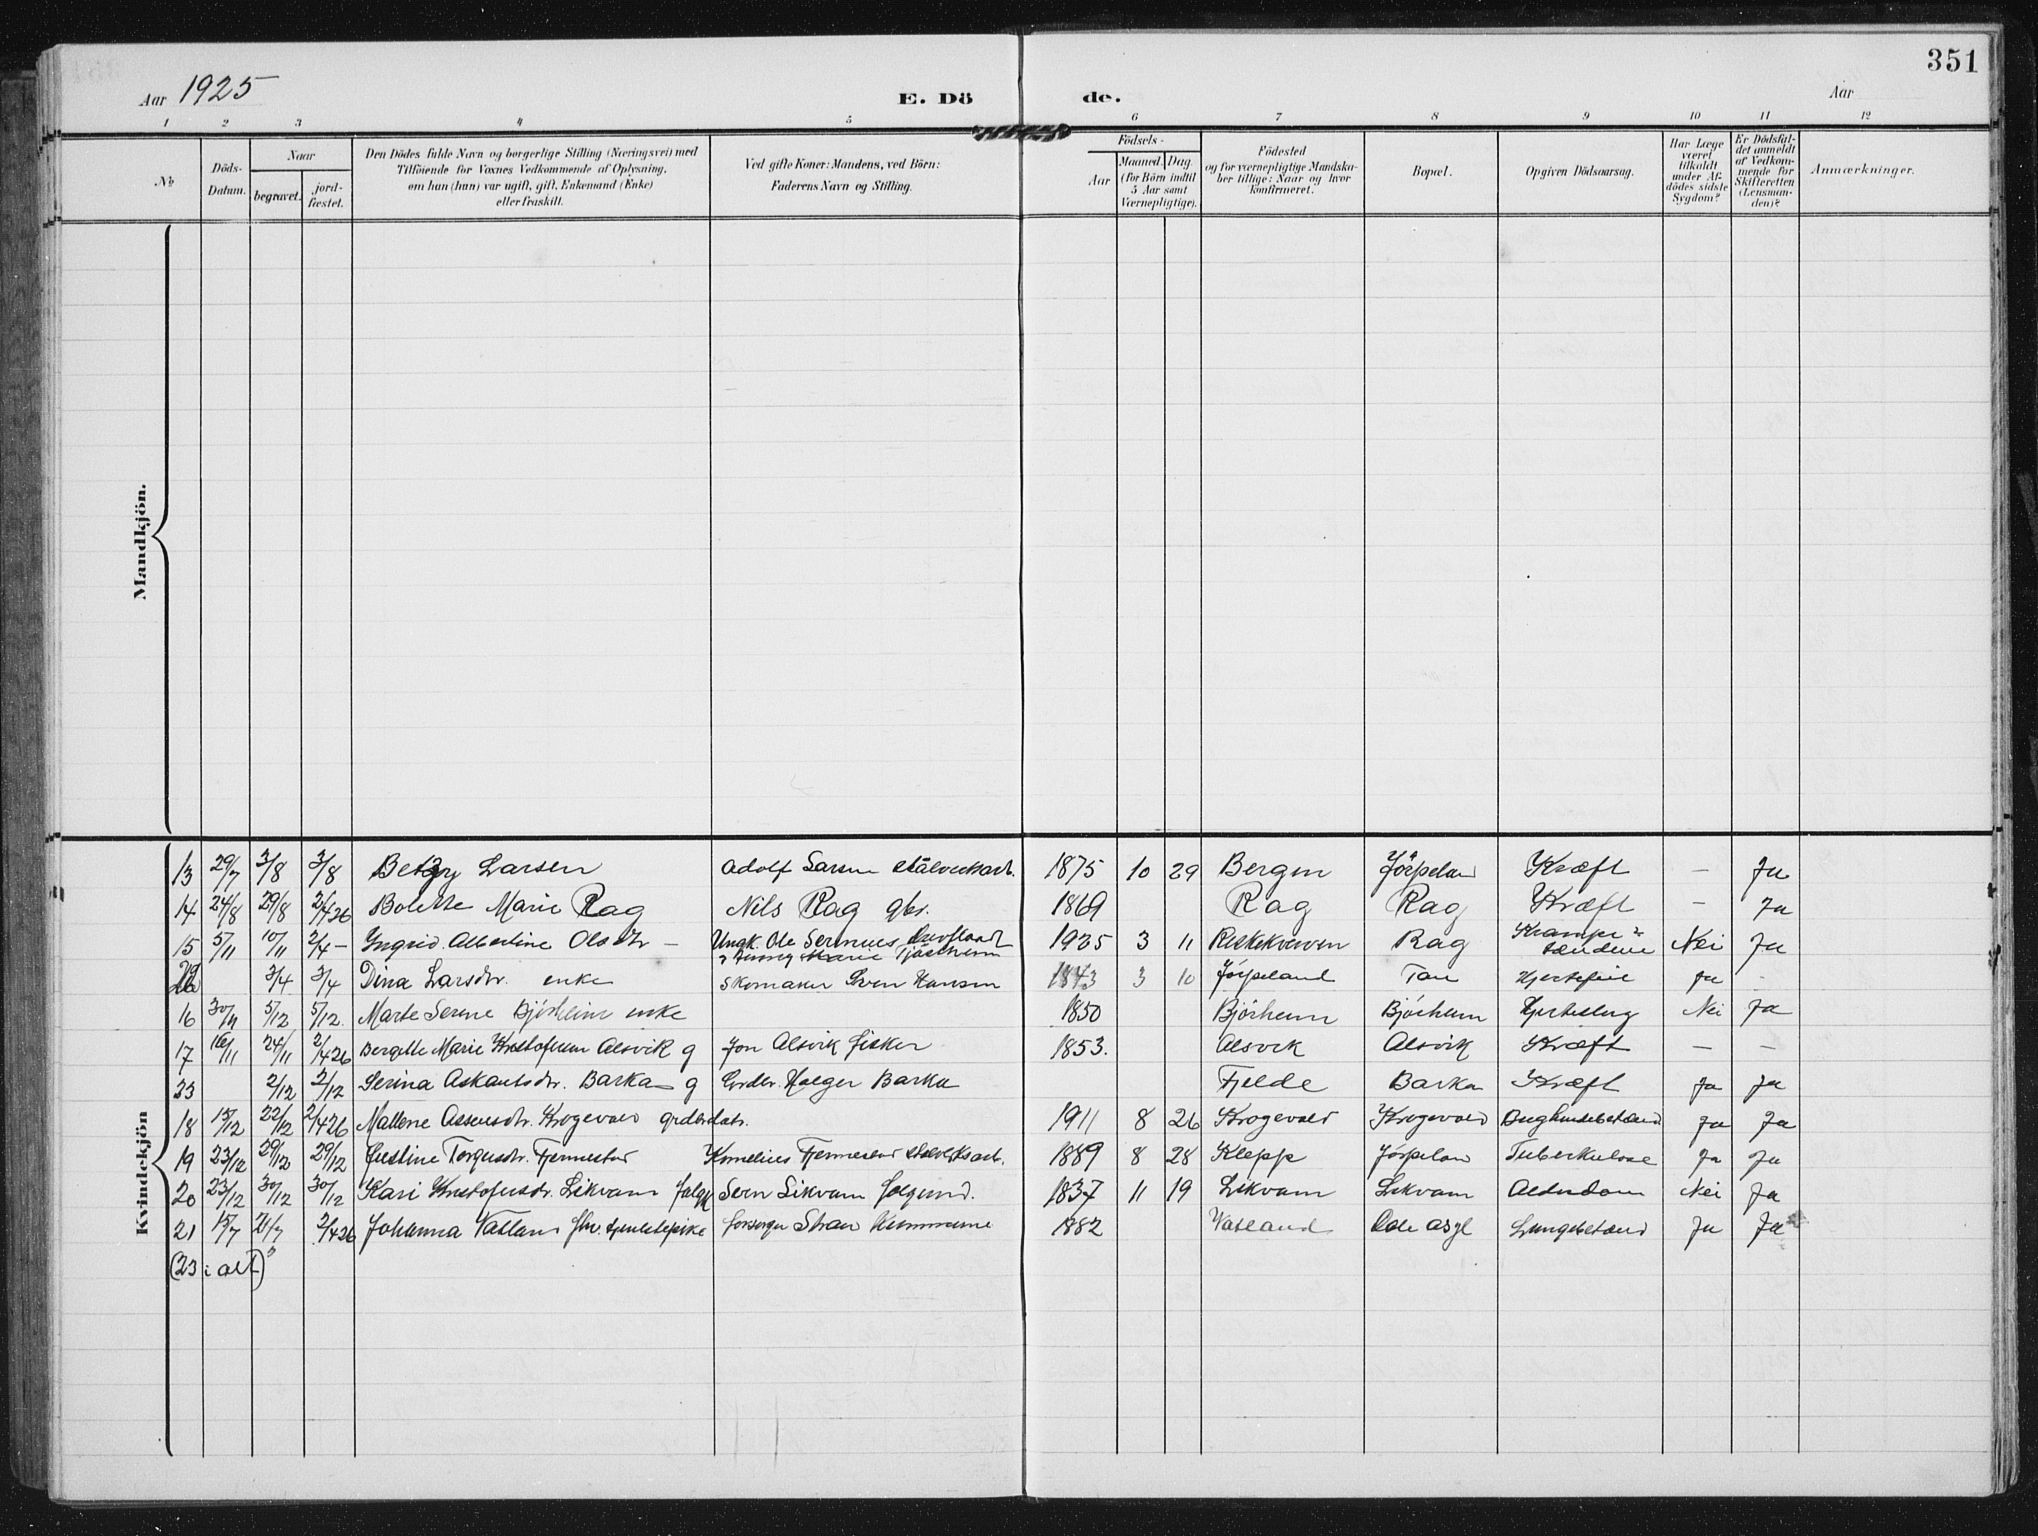 351
Aar 1925 E. Dö de. Aar
1 2 3 4 5 6 7 8 9 10 11 12
No
Döds-Datum.
Naar
begravet.
jord-fæstet.
Den Dödes fulde Navn og borgerlige Stilling (Næringsvei) med Tilföiende for Voxnes Vedkommende af Oplysning, om han (hun) var ugift, gift, Enkemand (Enke) eller fraskilt.
Ved gifte Koner: Mandens, ved Börn: Faderens Navn og Stilling.
Födsels-
Aar
Maaned. Dag.
(for Börn indtil 5 Aar samt Værnepligtige).
Födested og for værnepligtige Mandskaber tillige: Naar og hvor konfirmeret.
Bopæl.
Opgiven Dödsaarsag.
Har Læge været tilkaldt under Afdödes sidste Sygdom?
Er Dödsfaldet anmeldt af Vedkommende for Skifteretten (Lensmanden)?
Anmærkninger.
Mandkjön.
Kvindekjön
13 29/7 3/8 3/8 Betzy Larsen Adolf Larsen stålverksarb. 1875 10 29 Bergen Jörpeland Kræft — Ja
14 24/8 29/8 2/4 26 Bolette Marie Rag Nils Rag gbr. 1869 Rag Rag Kræft — Ja
15 5/11 10/11 2/4 — Ingrid Albertine Olsdtr — Ungk. Ole Serinius 1925 3 11 Rag Nei Ja
3/4 3/4 Dina Larsdtr. enke Skomaker Sven Hansen 1843 3 10 Jörpeland Tau Hjertefeil Ja -
16 30/11 5/12 5/12. Marte Serine Bjørheim enke 1850 Bjørheim Bjørheim Hjerteslag Nei Ja
17 16/11 24/11 2/4 26 Bergitte Marie Kristofersen Alsvik g Jon Alsvik fisker 1853. Alsvik Alsvik Kræft — —
23 2/12 2/12 Serina Askautsdr. Barka g Holger Barka Fjelde Barka Kræft Ja Ja
18 15/12 22/12 2/4 26 Mallene Assensdtr. Krogevold grdbr.datr. 1911 8 26 Krogevold Krogevold Bughindebetænd Ja Ja
19 23/12 29/12 29/12 Justine Torgersdtr. Fjermestad Kornelius Fjermestad stålverksarb. 1889 8 28 Klepp Jörpeland Tuberkulose Ja Ja
20 23/12 30/12 30/12 Kari Kristofersdr. Likvam folgk Sven Likvam folgmd. 1837 11 19 Likvam Likvam Alderdom Nei Ja
21 15/7 21/7 2/4 26 Johanna Vatland fhv. tjenestepike forsørges Strand Kommune 1882 Vatland Ode asyl Lungebetænd Ja Ja
(23 i alt)